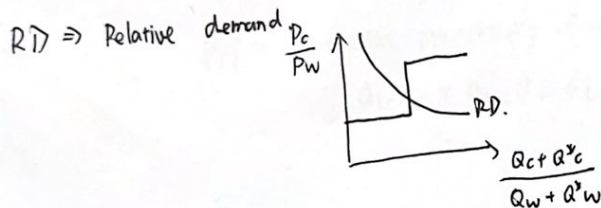 RD ⇒ Relative demand
Pc
Pw
RD.
Qc + Q*c
Qw + Q*w